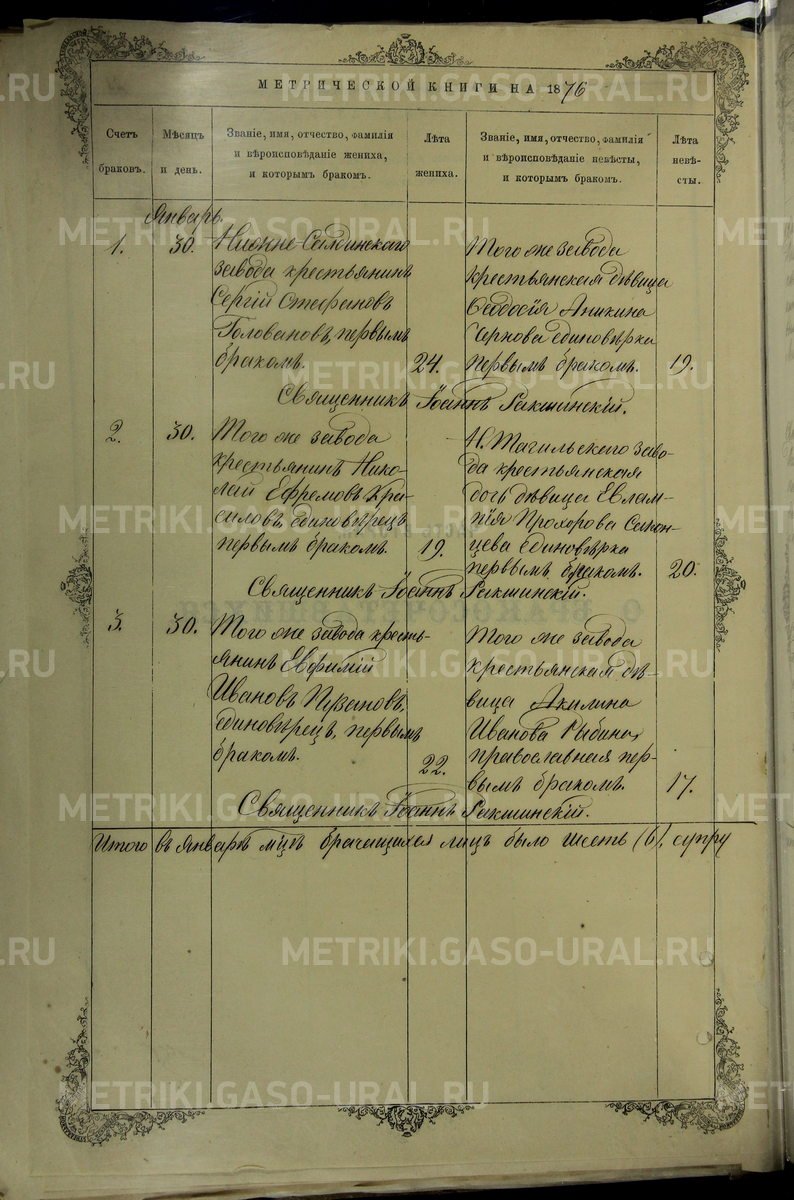 МЕТРИЧЕСКОЙ КНИГИ НА 1876
Счетъ браковъ.
Мѣсяцъ и день.
Званіе, имя, отчество, фамилія и вѣроисповѣданіе жениха, и которымъ бракомъ.
Лѣта жениха.
Званіе, имя, отчество, фамилія и вѣроисповѣданіе невѣсты, и которымъ бракомъ.
Лѣта невѣсты.
Январь.
1.
30.
Нижне Салдинскаго
завода крестьянинъ
Сергій Стефановъ
Головановъ, первымъ
бракомъ.
24.
Того же завода
крестьянская дѣвица
Ѳеодосія Аникина
Чернова единовѣрка
первымъ бракомъ.
19.
Священникъ Іоаннъ Ракшинскій.
2.
30.
Того же завода
крестьянинъ Нико-
лай Ефремовъ Кра-
силовъ единовѣрецъ
первымъ бракомъ.
19.
Н. Тагильскаго заво-
да крестьянская
дочь дѣвица Евлам-
пія Прохорова
цева единовѣрка
первымъ бракомъ.
20.
Священникъ Іоаннъ Ракшинскій.
3.
30.
Того же завода кресть-
янинъ Евфимій
Ивановъ Пузановъ,
единовѣрецъ, первымъ
бракомъ.
22.
Того же завода
крестьянская дѣ-
вица Акилина
Иванова Рыбина,
православная пер-
вымъ бракомъ.
17.
Священникъ Іоаннъ Ракшинскій.
Итого въ январѣ мцѣ брачащихся лицъ было шесть (6), супру
METRIKI.GASO-URAL.RU